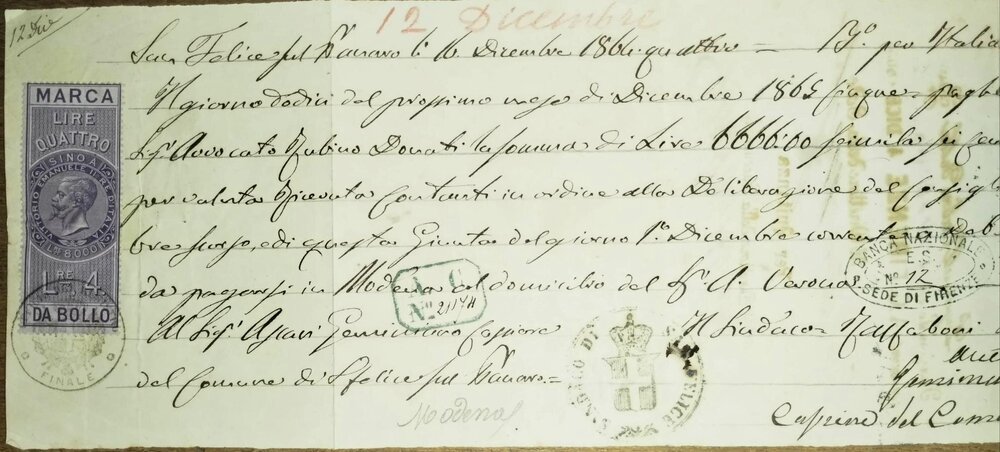 12 Dicembre
12 Dic
San Felice sul Panaro li 16 Dicembre 1864 quattro = B.º per Italia
Il giorno dodici del prossimo mese di Dicembre 1865 cinque paghe
Sig.r Avvocato Rubino Donati la somma di Lire 6666.00 seimila sei cen
per valuta ricevuta contanti in ordine alla Deliberazione del Consigli
bre scorso, e di questa Giunta del giorno 1º Dicembre corrente
da pagarsi in Modena al domicilio del S.r A. Verona
Al Sig.r Geminiano Cassiere Il Sindaco
del Comune di S felice sul Panaro =
Cassiere del Com
Modena
MARCA
LIRE
QUATTRO
SINO A L.
VITTORIO EMANUELE II RE D'ITALIA
L. 8000
LRE 4
DA BOLLO
FINALE
A C
Nº 21174
BANCA NAZIONALE
E S
Nº 12
SEDE DI FIRENZE
SINDACO DI S. FELICE